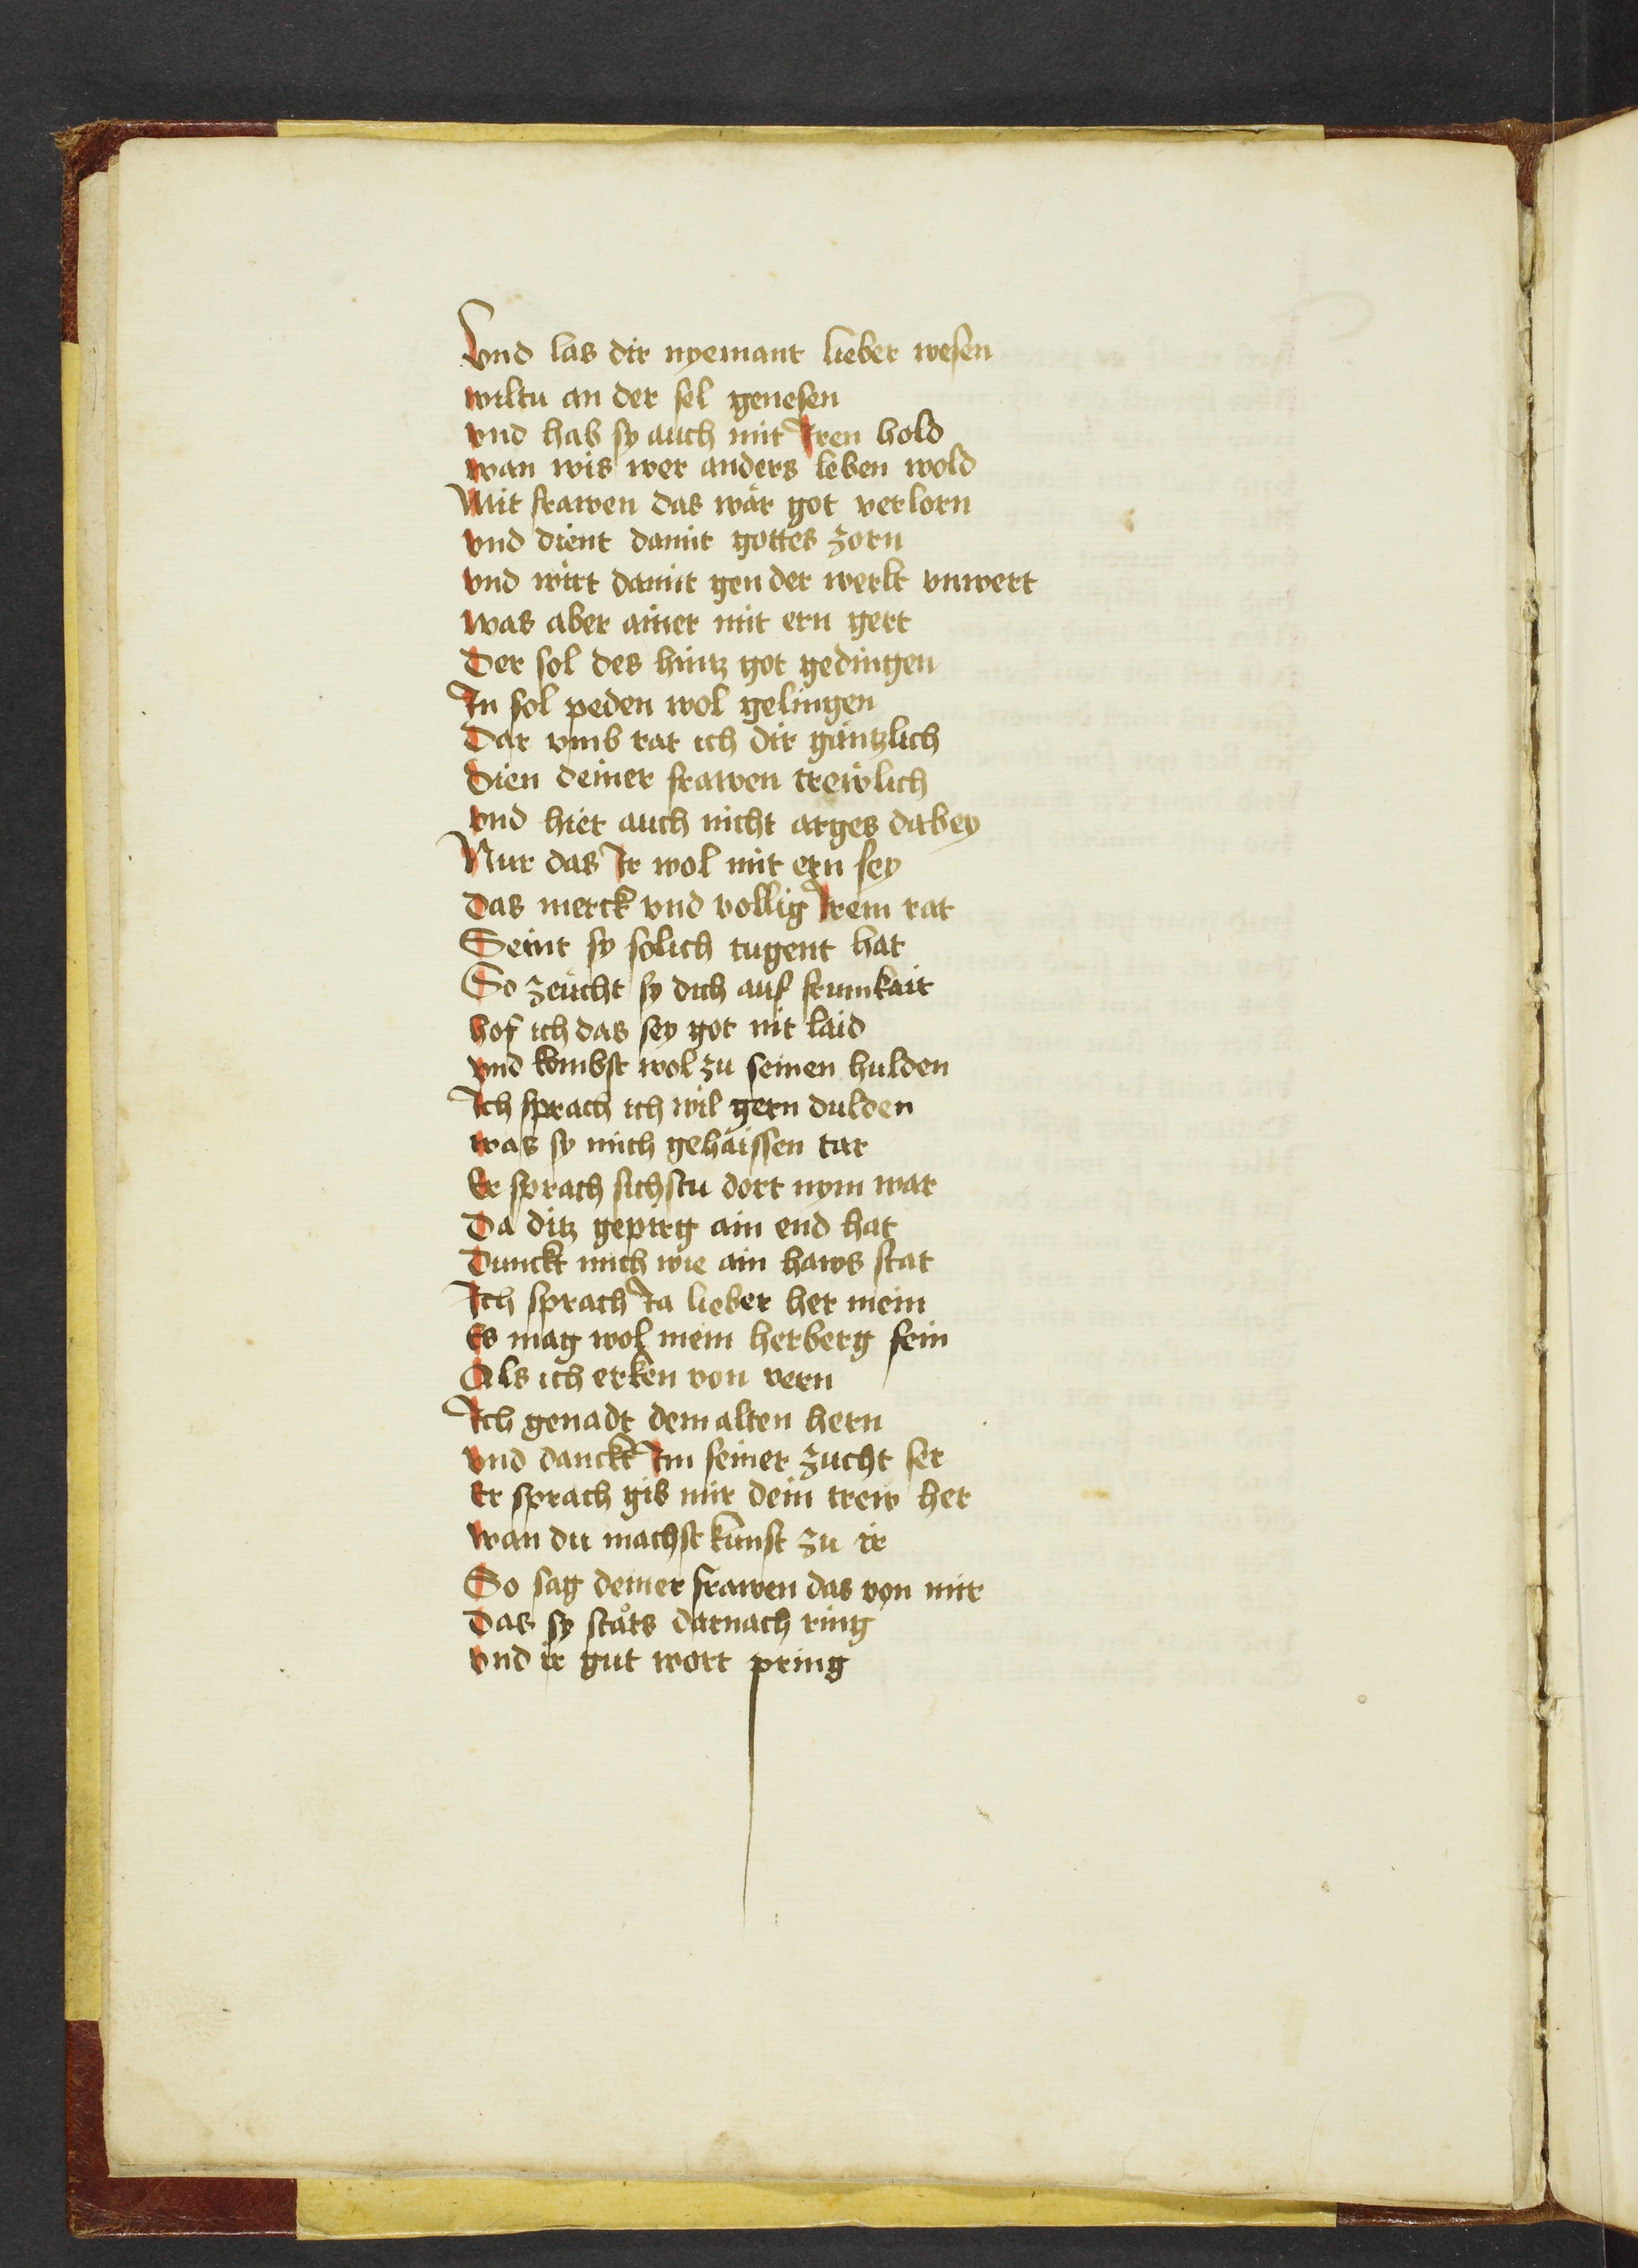 Vnd las dir nyemant lieber wesen
wiltu an der sel genesen
vnd hab sy auch mit Iren hold
wan wis wer anders leben wold
Mit frawen das wär got verlorn
vnd dient damit gottes zorn
vnd wirt damit gen der werlt vnwert
was aber ainer mit ern gert
Der sol des hintz got gedingen
In sol peden wol gelingen
Dar vmb rat ich dir gäntzlich
Dien deiner frawen trewlich
vnd hiet auch nicht arges dabey
Nur das Ir wol mit ern sey
Das merck vnd vollig Irem rat
Seint sy solich tugent hat
So zeücht sy dich auf frumkait
hof ich das sey got nit laid
vnd kombst wol zu seinen hulden
Ich sprach ich wil gern dulden
was sy mich gehaissen tar
Er sprach sichstu dort nym war
Da ditz gepirg ain end hat
Dunckt mich wie ain haws stat
Ich sprach Ia lieber her mein
Es mag wol mein herberg sein
Als ich erken von vern
Ich genadt dem alten hern
vnd danckt Im seiner zucht ser
Er sprach gib mir dein trew her
wan du machst kunst zu ir
So sag deiner frawen das von mir
Das sy stäts darnach ring
vnd ir gut wort pring